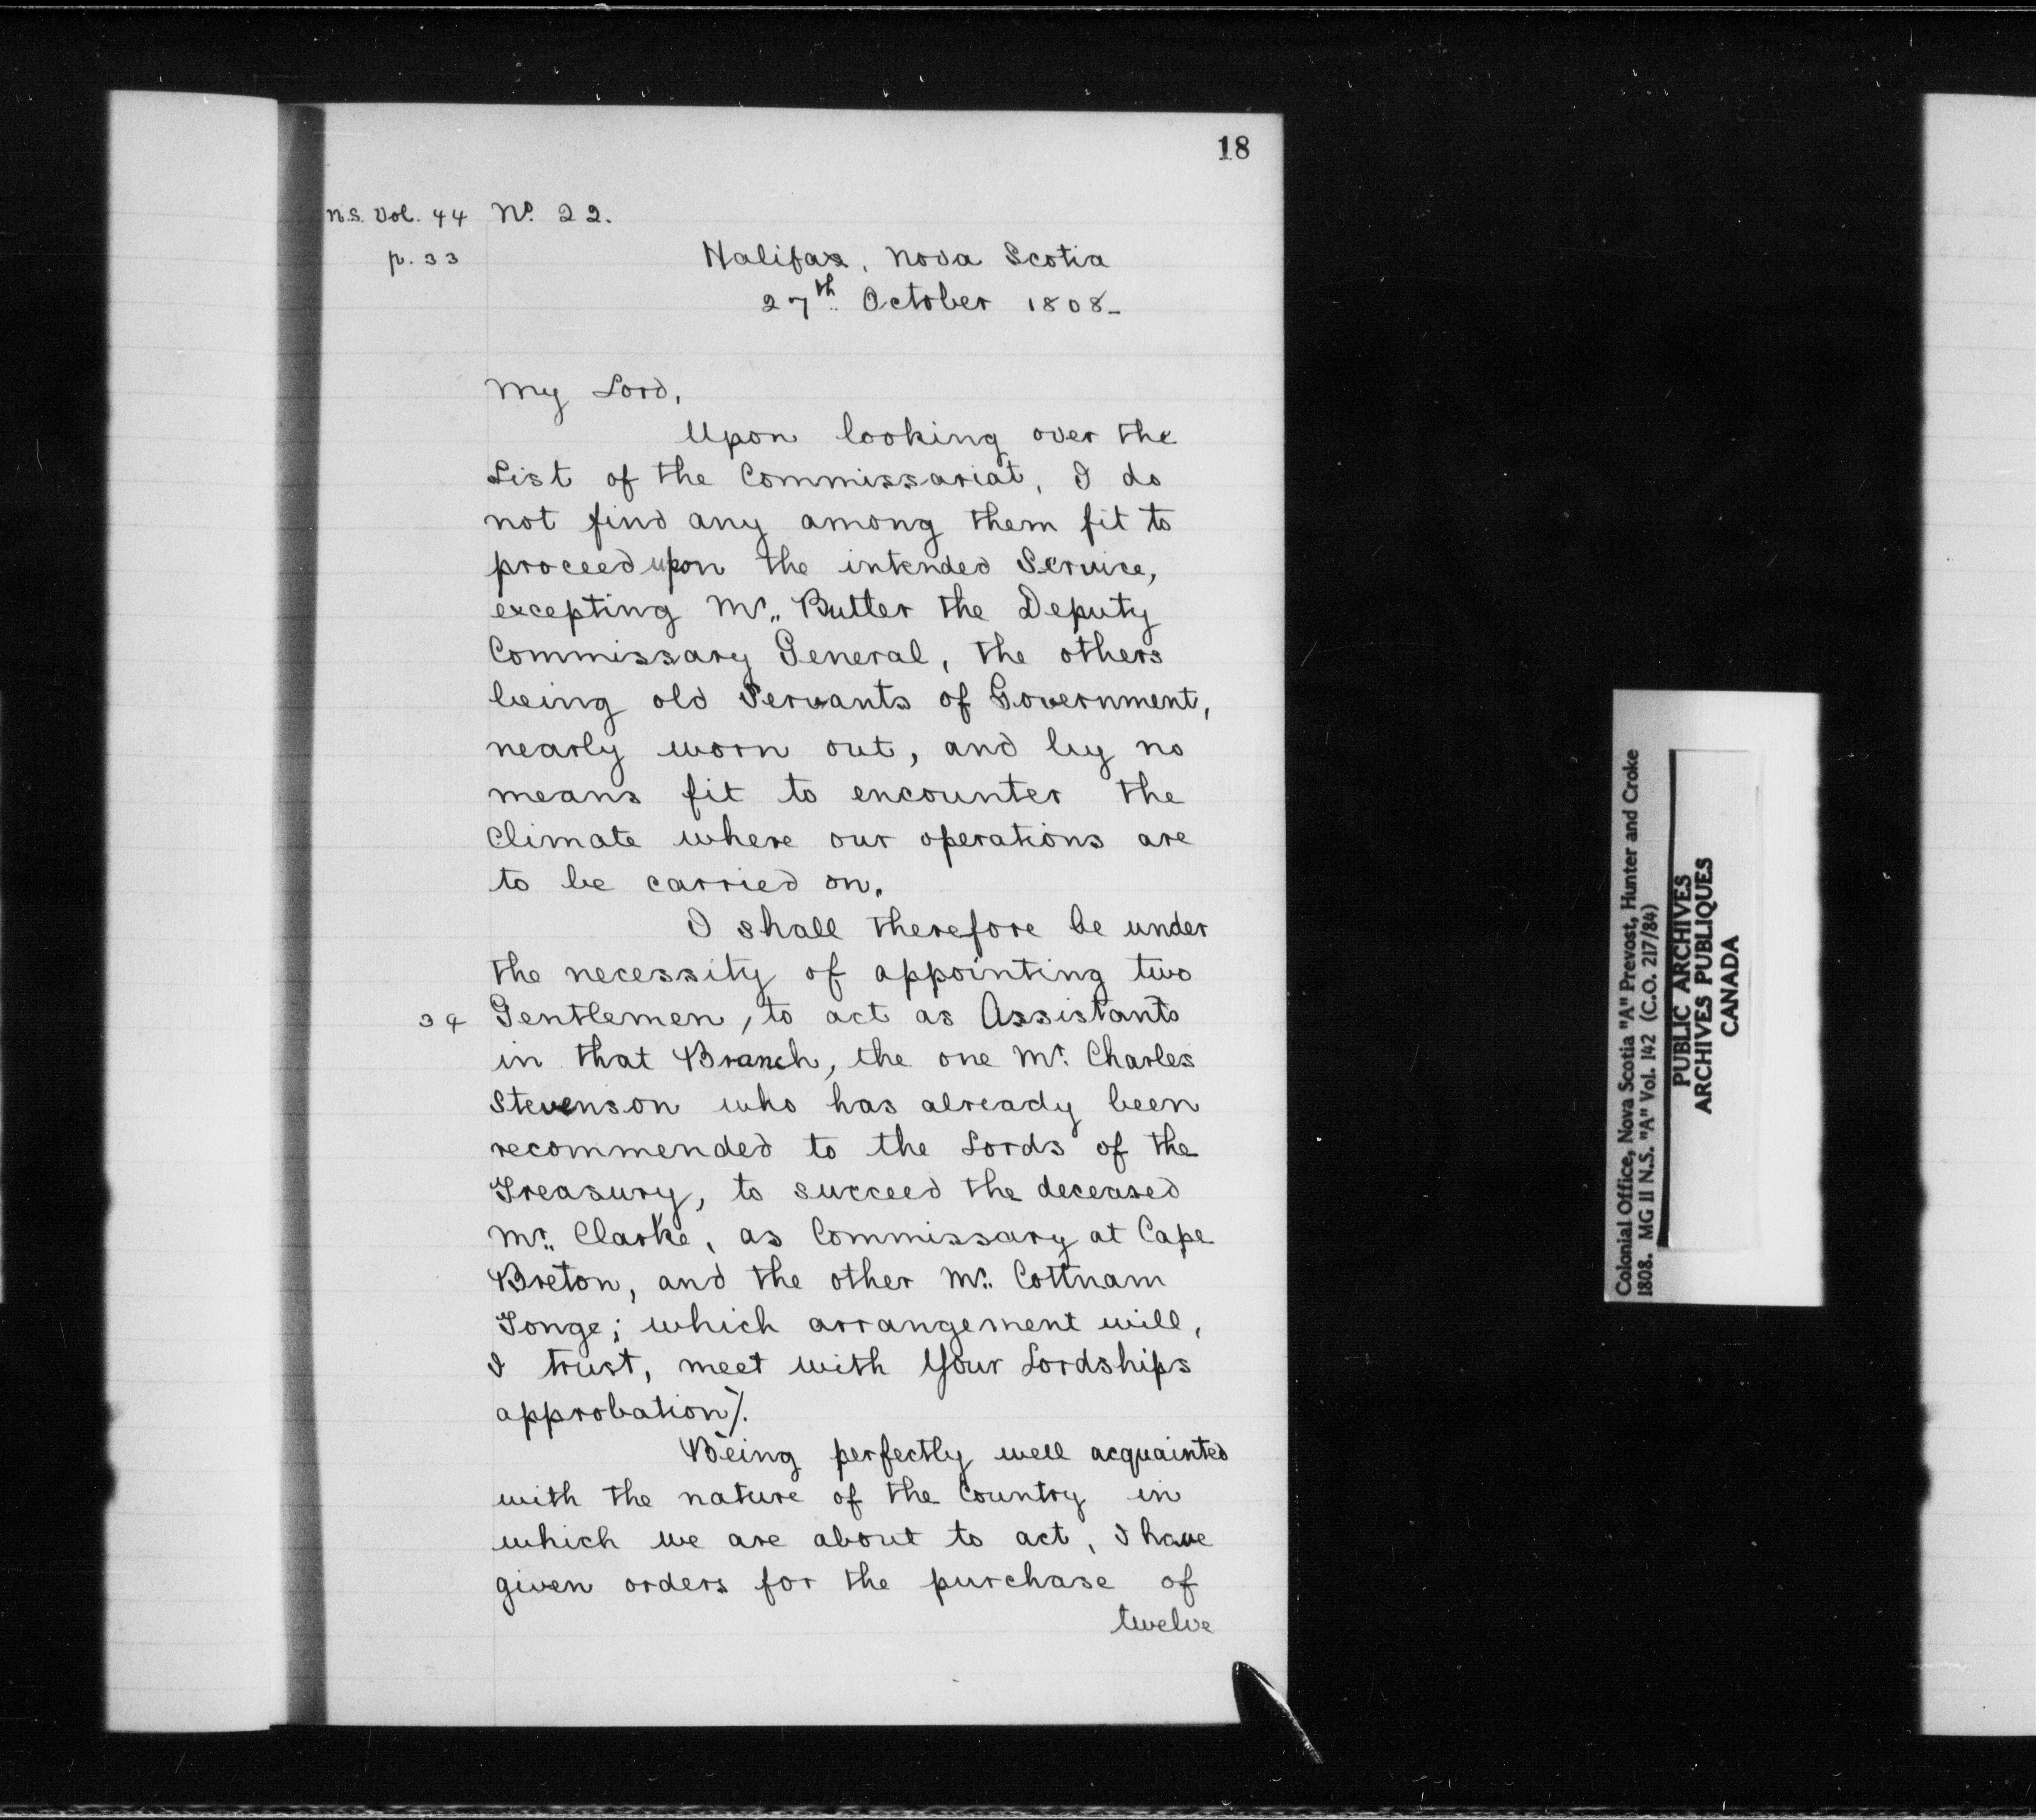 18
N.S. Vol. 44 No. 22.
p. 33 Halifax, Nova Scotia
27th October 1808 -
My Lord,
Upon looking over the
List of the Commissariat, I do
not find any among them fit to
proceed upon the intended Service,
excepting Mr. Butler the Deputy
Commissary General, the others
being old Servants of Government,
nearly worn out, and by no
means fit to encounter the
Climate where our operations are
to be carried on.
I shall therefore be under
the necessity of appointing two
34 Gentlemen, to act as Assistants
in that Branch, the one Mr. Charles
Stevenson who has already been
recommended to the Lords of the
Treasury, to succeed the deceased
Mr. Clarke, as Commissary at Cape
Breton, and the other Mr. Cottnam
Tonge; which arrangement will,
I trust, meet with Your Lordships
approbation/.
Being perfectly well acquainted
with the nature of the Country in
which we are about to act, I have
given orders for the purchase of
twelve
Colonial Office, Nova Scotia "A" Prevost, Hunter and Croke
1808. MG 11 N.S. "A" Vol. 142 (C.O. 217/84)
PUBLIC ARCHIVES
ARCHIVES PUBLIQUES
CANADA